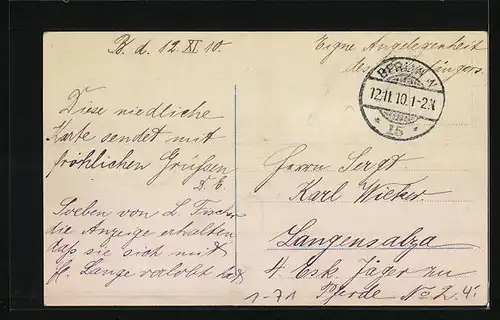 B. d. 12. XI. 10.
Eigne Angelegenheit
des Empfängers.
BERLIN N
12.11.10.1-2N
* 15 *
Diese niedliche
Karte sendet mit
fröhlichen Grüßen
F. E.
Soeben von L. Fischer
die Anzeige erhalten
daß sie sich mit
Lange verlobt hat
Herrn Sergt
Karl Wieker.
Langensalza
4. Esk. Jäger zu
Pferde No 2.
1-71